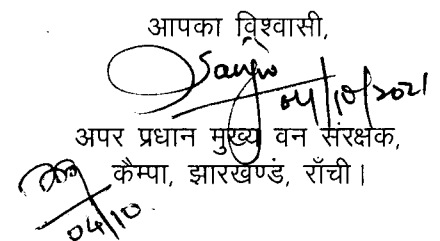 आपका विश्वासी,
04/10/2021
अपर प्रधान मुख्य वन संरक्षक,
कैम्पा, झारखण्ड, राँची।
04/10.